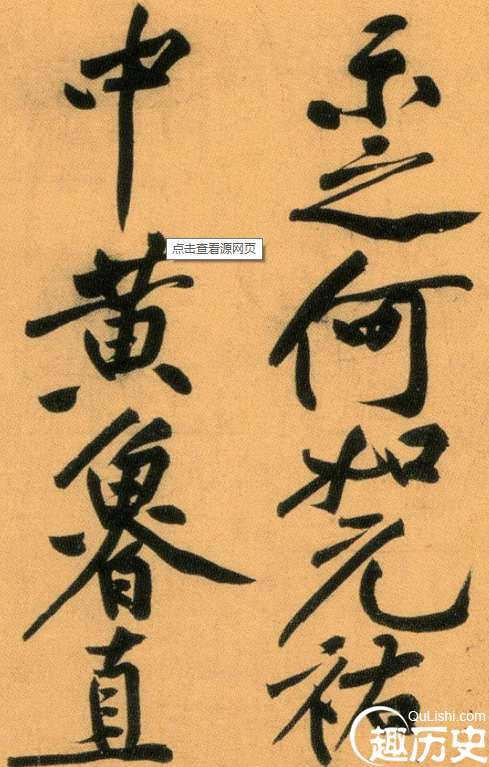 示之何如元祐
中黄魯直
点击查看源网页
QuLishi.com
趣历史